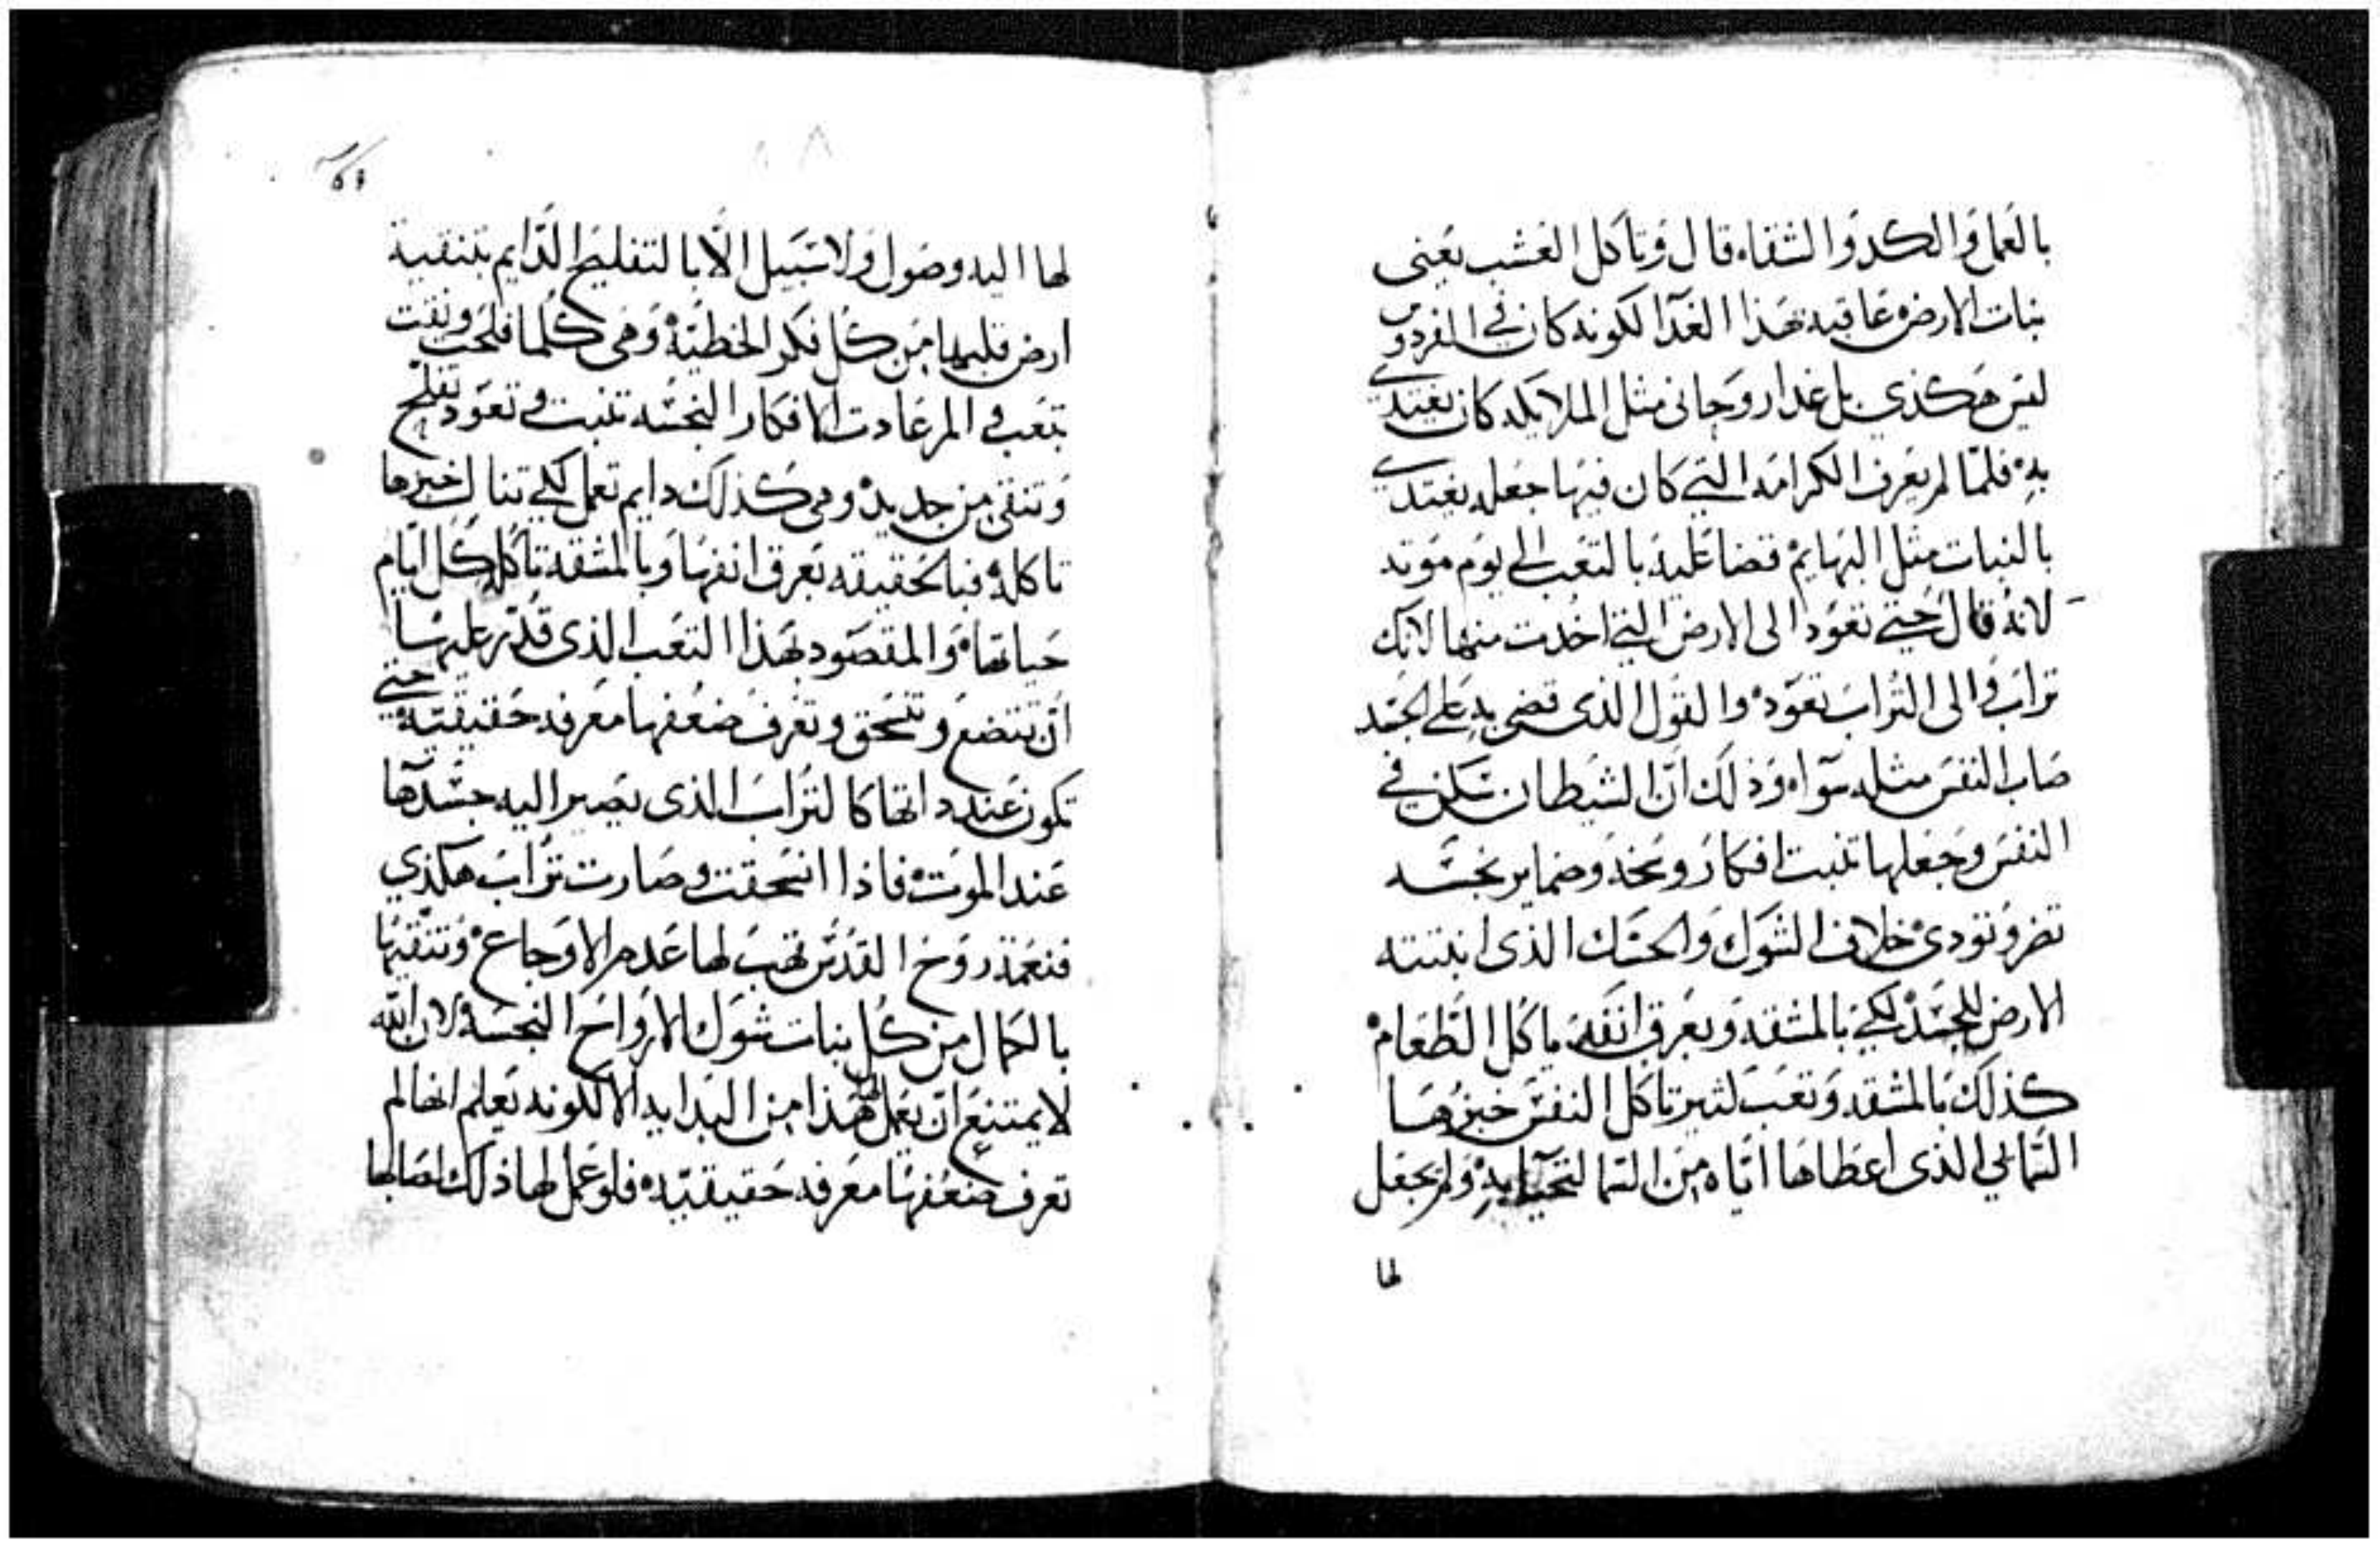 بالعمل والكد والشقاء قال وتاكل العشب يعني
نبات الارض عاقبه بهذا الغدا لكونه كان في الفردوس
ليس هكذي بل غدا روحاني مثل الملايكه كان يغتدي
به فلما لم يعرف الكرامه التي كان فيها جعله يغتدي
بالنبات مثل البهايم قضا عليه بالتعب الى يوم موته
لانه قال حتي تعود الى الارض التي اخدت منها لانك
تراب والى التراب تعود والقول الذي قضي به على الجسد
صاب النفس مثله سوا وذلك ان الشيطان سكن في
النفس وجعلها تنبت افكار وسخه وضماير نجسه
تضر وتودي خلاف الشوك والحسك الذي انبتته
الارض للجسد لكي بالمشقه وبعرق انفه ياكل الطعام
كذلك بالمشقه وتعب كثير تاكل النفس خبزها
السمايي الذي اعطاها اياه من السما لتحيا به ولم يجعل
لها
لها اليه وصول ولا سبيل الا بالتفليح الدايم بتنقية
ارض قلبها من كل فكر الخطيه وهي كلما فلحت ونقت
بتعب والم عادت الافكار النجسه تنبت وتعود تفلح
وتنقي من جديد وهي كذلك دايم تعمل لكي تنال خبزها
تاكله فبالحقيقه بعرق انفها وبالمشقه تاكله كل ايام
حياتها والمقصود بهذا التعب الذي قدر عليها
ان تتضع وتنسحق وتعرف ضعفها معرفه حقيقيه حتي
تكون عند داتها كالتراب الذي يصير اليه جسدها
عند الموت فاذا انسحقت وصارت تراب هكذي
فنعمة روح القدس تهب لها عدم الاوجاع وتنقيها
بالكمال من كل نبات شوك الارواح النجسه لان الله
لا يمتنع ان يعمل لها هذا من البدايه الا لكونه يعلم انها لم
تعرف ضعفها معرفه حقيقيه فلو عمل لها ذلك لصابها